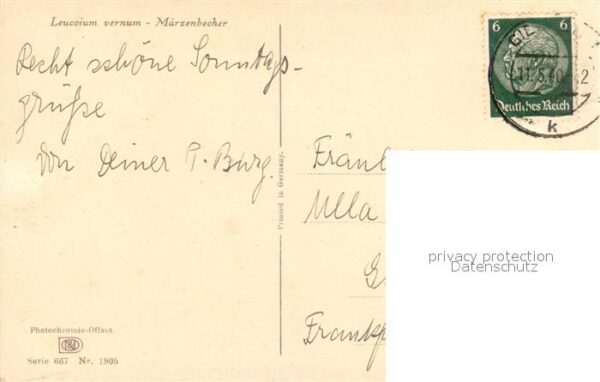 Leucoium vernum - Märzenbecher
Recht schöne Sonntags-
grüße
von Deiner T. Burg.
Printed in Germany.
6 6
Deutsches Reich
GIE
11.5.40
2
k
Fräul
Ulla
G
Frankf
privacy protection
Datenschutz
Photochromie-Offset.
Serie 667 Nr. 1905